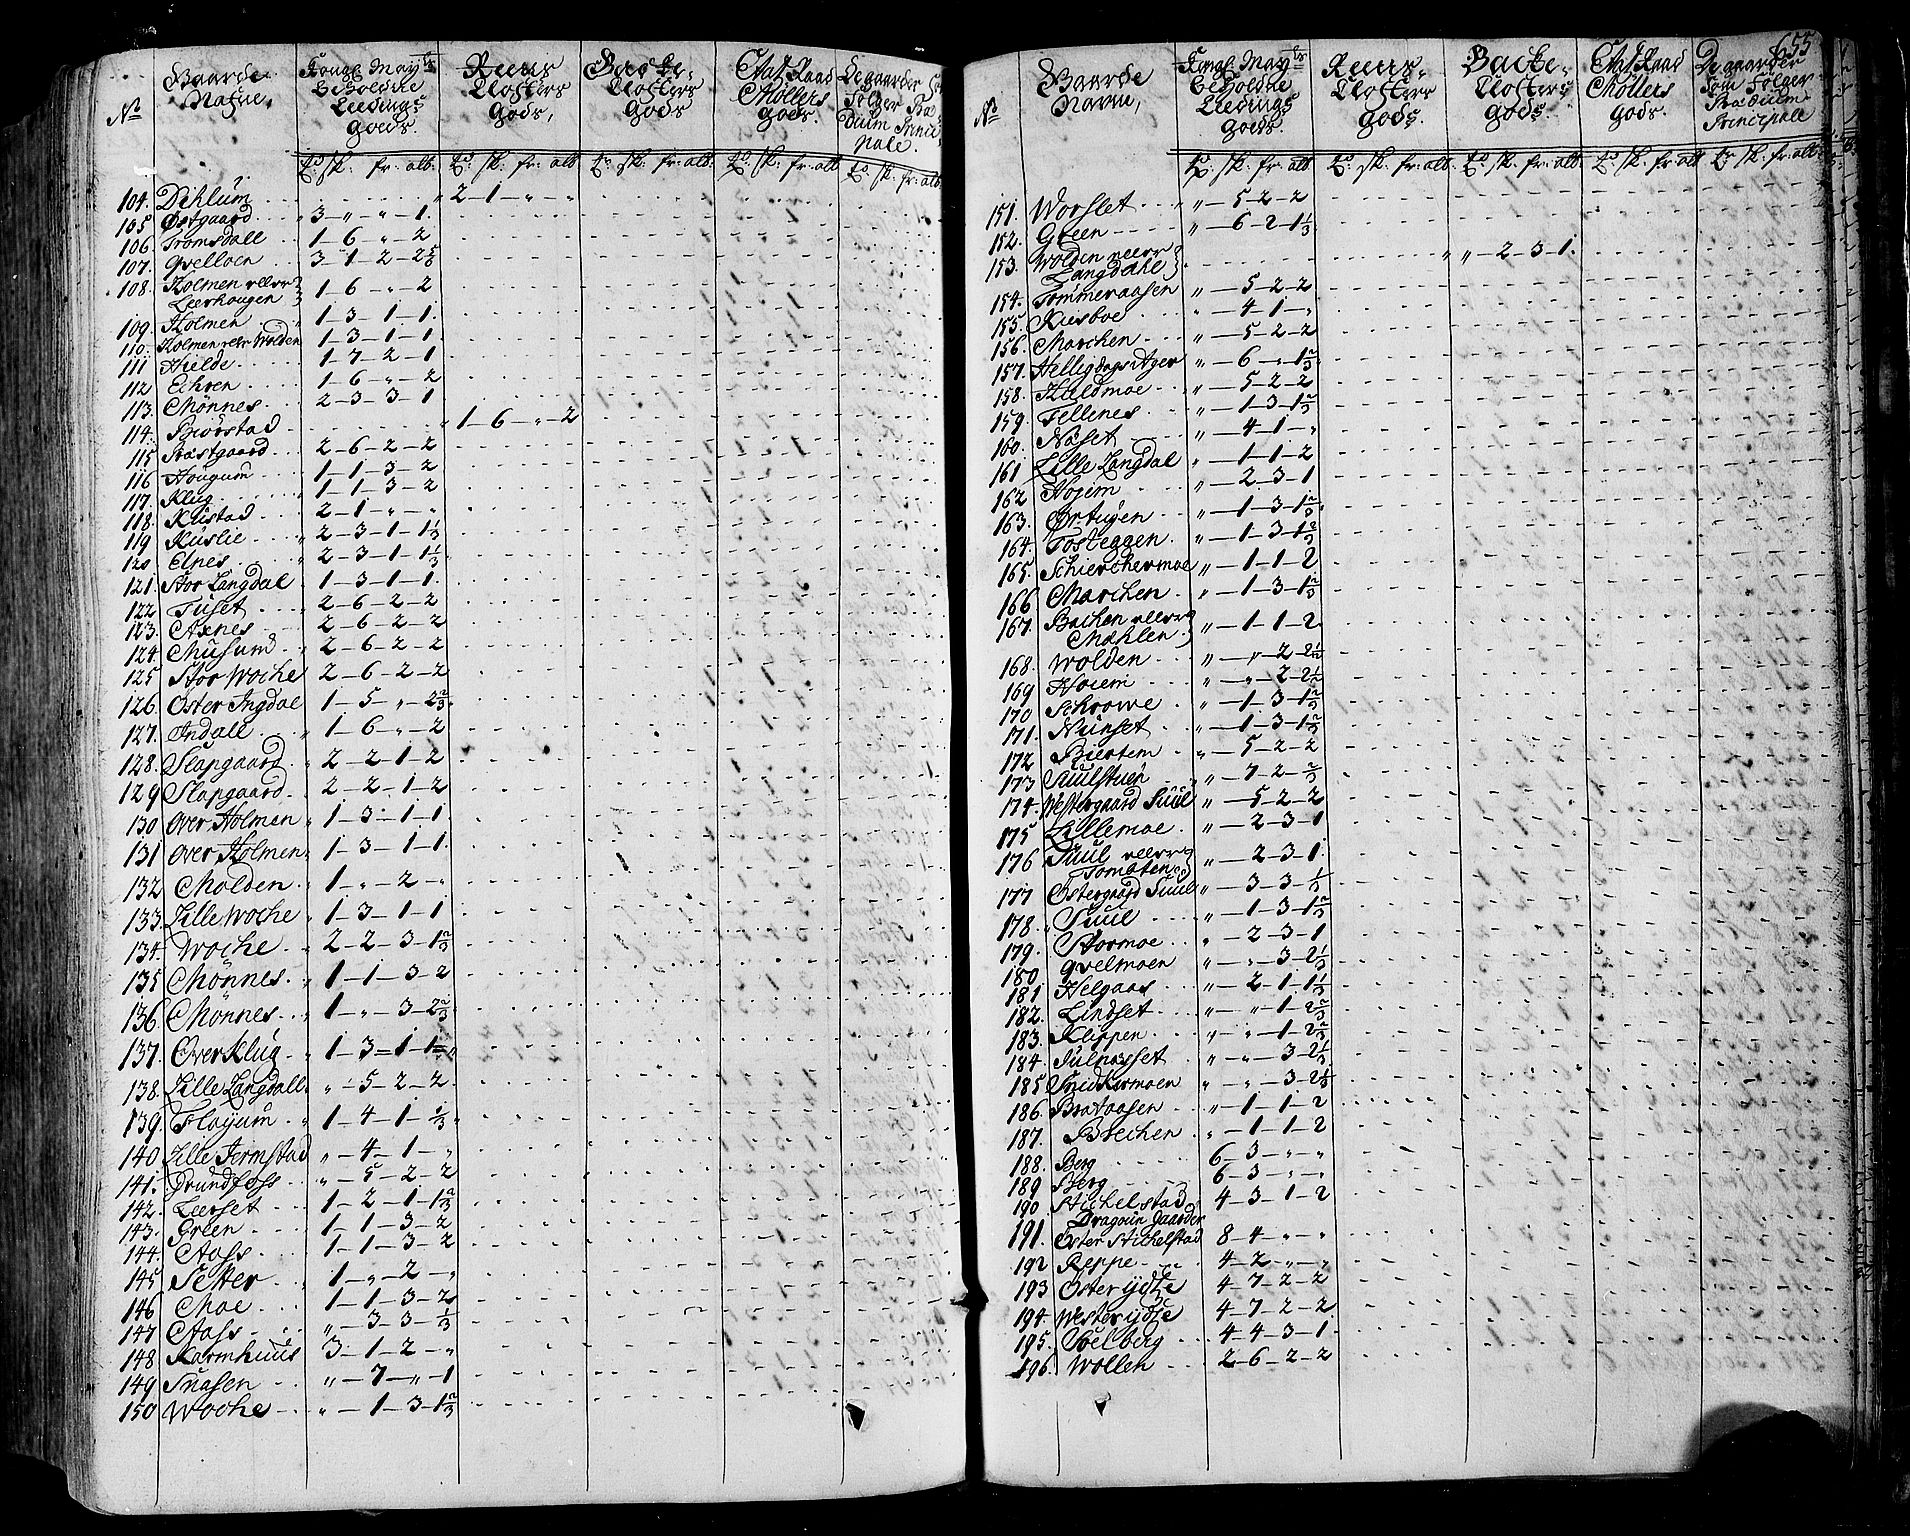 655
No Gaarde Nafne, Kongl May:ts Beholdne Leedings Gods. Reens Closters Gods, Backe Closters Gods Etat Raad Möllers Gods. De gaarder Som Følger Prædium Principale.
104. Dihlum 2 - 1 - „ - „
105 Østgaard 3 - „ - „ - 1
106. Tromsdall 1 - 6 - „ - 2
107. Qvelloen 3 - 1 - 2 - 2 5/6
108. Holmen 1 - 6 - „ - 2
Leerhougen
109. Holmen 1 - 3 - 1 - 1
110. Holmen Wolden 1 - 3 - 1 - 1
111 Hielde 1 - 7 - 2 - 1
112 Echren 1 - 6 - „ - 2
113. Mönnes 2 - 3 - 3 - 1
114. Biörstad 1 - 6 - „ - 2
115 Præstgaard 2 - 6 - 2 - 2
116 Hougum 1 - 1 - 3 - 2
117. Klug 1 - 1 - 3 - 2
118. Kustad 2 - 1 - „ - „
119 Kuslie 2 - 3 - 1 - 1 1/3
120 Elnes 2 - 3 - 1 - 1 1/3
121. Stor Langdal 1 - 3 - 1 - 1
122. Tuset 2 - 6 - 2 - 2
123. Axnes 2 - 6 - 2 - 2
124. Musum 2 - 6 - 2 - 2
125 Stor Woche 2 - 6 - 2 - 2
126. Öster Ingdal 1 - 5 - „ - 2 2/3
127. Indall 1 - 6 - „ - 2
128. Slapgaard 2 - 2 - 1 - 2
129 Slapgaard 2 - 2 - 1 - 2
130 Over Holmen 1 - 3 - 1 - 1
131 Over Holmen 1 - 3 - 1 - 1
132 Molden 1 - „ - 2 - „
133. Lille Woche 1 - 3 - 1 - 1
134. Woche 2 - 2 - 3 - 1 2/3
135 Mönnes 1 - 1 - 3 - 2
136 Mönnes 1 - „ - 3 - 2 2/3
137. Over Klug 1 - 3 - 1 - 1
138. Lille Langdall „ - 5 - 2 - 2
139. Floyum 1 - 4 - 1 - 1/3
140 Lille Jermstad „ - 4 - 1 - „
141. Grundfoss „ - 5 - 2 - 2
142. Leerset 1 - 2 - 1 - 1 2/3
143. Green 1 - 1 - 3 - 2
144. Aass 1 - 1 - 3 - 2
145 Setter 1 - „ - 2 - „
146 Moe 1 - 1 - 3 - 2
147 Aass „ - 3 - 3 - 1/3
148 Karmhuus 3 - 1 - 2 - „
149 Snasen „ - 7 - „ - 1
150 Woche „ - 1 - 3 - 1 2/3
No Gaarde Navne, Kongl May:ts Beholdne Leedings Gods. Reens Closters Gods. Backe Closters Gods. Etat Raad Möllers Gods. De gaarder Som Følger Prædium Principale
151. Worslet „ - 5 - 2 - 2
152. Green „ - 6 - 2 - 1 1/3
153. Wolden „ - 2 - 3 - 1
Langdahl
154. Tommeraasen „ - 5 - 2 - 2
155. Kiesboe „ - 4 - 1 - „
156. Marchen „ - 5 - 2 - 2
157. Helligdags Ager „ - 6 - „ - 1 2/3
158. Kaldmoe „ - 5 - 2 - 2
159. Fellenes „ - 1 - 3 - 1 2/3
160. Næset „ - 4 - 1 - „
161 Lille Langdal „ - 1 - 1 - 2
162 Hojem „ - 2 - 3 - 1
163. Ørtugen „ - 1 - 3 - 1 2/3
164. Tosteggen „ - 1 - 3 - 1 2/3
165. Schierchermoe „ - 1 - 1 - 2
166 Marchen „ - 1 - 3 - 1 2/3
167. Bachen „ - 1 - 1 - 2
Mæhlen
168. Wolden „ - „ - 2 - 2 1/2
169 Hoiem „ - „ - 2 - 2 1/2
170 Schrowe „ - 1 - 3 - 1 2/3
171. Nunset „ - 1 - 3 - 1 2/3
172 Biertem „ - 5 - 2 - 2
173 Suulstuen „ - 7 - 2 - 2/3
174. Westergaard Suul „ - 5 - 2 - 2
175 Lillemoe „ - 2 - 3 - 1
176 Suul „ - 2 - 3 - 1
Tomten
177 Østergaard Suul „ - 3 - 3 - 1/3
178. Suul „ - 1 - 3 - 1 2/3
179. Stormoe „ - 2 - 3 - 1
180 Qvelmoen „ - „ - 3 - 2 1/3
181 Helgaas „ - 2 - 1 - 1 1/3
182. Lindset „ - „ - 1 - 2 2/3
183. Klippen „ - „ - 1 - 2 2/3
184. Julnæsset „ - „ - 3 - 2 1/3
185 Snidkermoen „ - „ - 3 - 2 1/3
186. Brataasen „ - 1 - 1 - 2
187. Brechen „ - 1 - 1 - 2
188. Berg 6 - 3 - „ - „
189 Berg 6 - 3 - „ - „
190 Stichelstad 4 - 3 - 1 - 2
Dragoun Gaarder
191. Öster Stichelstad 8 - 4 - „ - „
192 Reppe 4 - 2 - „ - „
193 Öster ydtze 4 - 7 - 2 - 2
194. Wester ydtze 4 - 7 - 2 - 2
195. Soelberg 4 - 4 - 3 - 1
196. Wollen 2 - 6 - 2 - 2